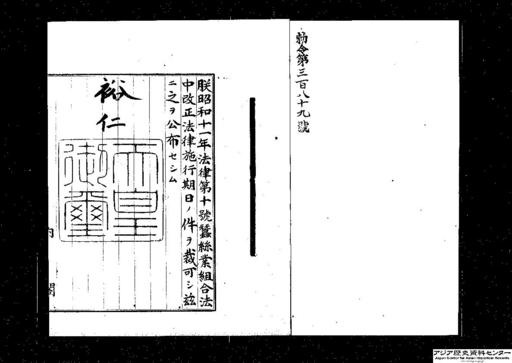 勅令第三百八十九號
朕昭和十一年法律第十號蠶絲業組合法
中改正法律施行期日ノ件ヲ裁可シ茲
ニ之ヲ公布セシム
裕仁
天皇
御璽
内閣
アジア歴史資料センター
Japan Center for Asian Historical Records